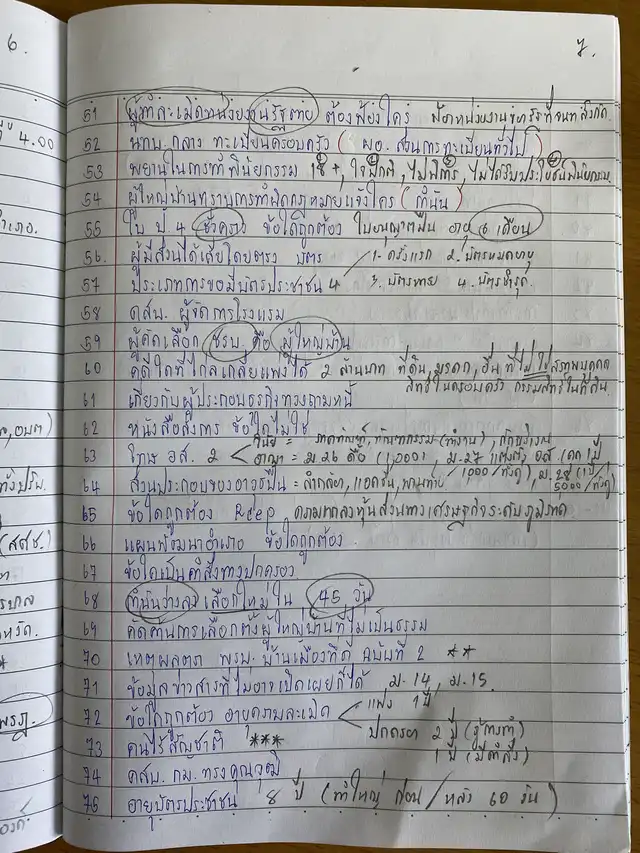 6.
7.
4.00
51 ผู้ทำละเมิดหน่วยงานรัฐตาย ต้องฟ้องใคร
52 นทบ. กลาง ทะเบียนครอบครัว (ผอ. ส่วนการทะเบียนทั่วไป)
53 พยานในการทำพินัยกรรม
54 ผู้ใหญ่บ้านทราบการทำผิดกฎหมายแจ้งใคร (กำนัน)
55 ใบ ป 4 ชั่วคราว ข้อใดถูกต้อง ใบอนุญาตปืน อายุ 6 เดือน
56. ผู้มีส่วนได้เสียโดยตรง บัตร 1. ครั้งแรก 2. บัตรหมดอายุ
57 ประเภทการขอมีบัตรประชาชน 4 3. บัตรหาย 4. บัตรชำรุด
58 คสน. ผู้จัดการโรงแรม
59 ผู้คัดเลือก ชรบ. คือ ผู้ใหญ่บ้าน
60 คดีใดที่ไกล่เกลี่ยแพ่งได้ 2 ล้านบาท ที่ดิน, มรดก, อื่น ที่ไม่ใช่สภาพบุคคล
สิทธิในครอบครัว กรรมสิทธิ์ในที่ดิน
61 เกี่ยวกับผู้ประกอบธุรกิจทวงถามหนี้
62 หนังสือสั่งการ ข้อใดไม่ใช่
63 โทษ อส. 2 วินัย = ภาคทัณฑ์, ทัณฑกรรม (ทำงาน), กักบริเวณ
อาญา = ม.26 คือ
64 ส่วนประกอบของอาวุธปืน = ลำกล้อง,
65 ข้อใดถูกต้อง Rcep ความตกลงหุ้นส่วนทางเศรษฐกิจระดับภูมิภาค
66 แผนพัฒนาอำเภอ ข้อใดถูกต้อง
67 ข้อใดเป็นคำสั่งทางปกครอง
68 กำนันว่างลง เลือกใหม่ใน 45 วัน
69 คัดค้านการเลือกตั้งผู้ใหญ่บ้านที่ไม่เป็นธรรม
70 เหตุผลตรา พรบ. บ้านเมืองที่ดี ฉบับที่ 2 **
71 ข้อมูลข่าวสารที่ไม่อาจเปิดเผยก็ได้ ม.14, ม.15
72 ข้อใดถูกต้อง อายุความละเมิด แพ่ง 1 ปี
ปกครอง 2 ปี (ผู้กระทำ)
73 คนไร้สัญชาติ *** 1 ปี (มีคำสั่ง)
74 คสน. กม. ทรงคุณวุฒิ
75 อายุบัตรประชาชน 8 ปี (ทำใหม่ ก่อน / หลัง 60 วัน)